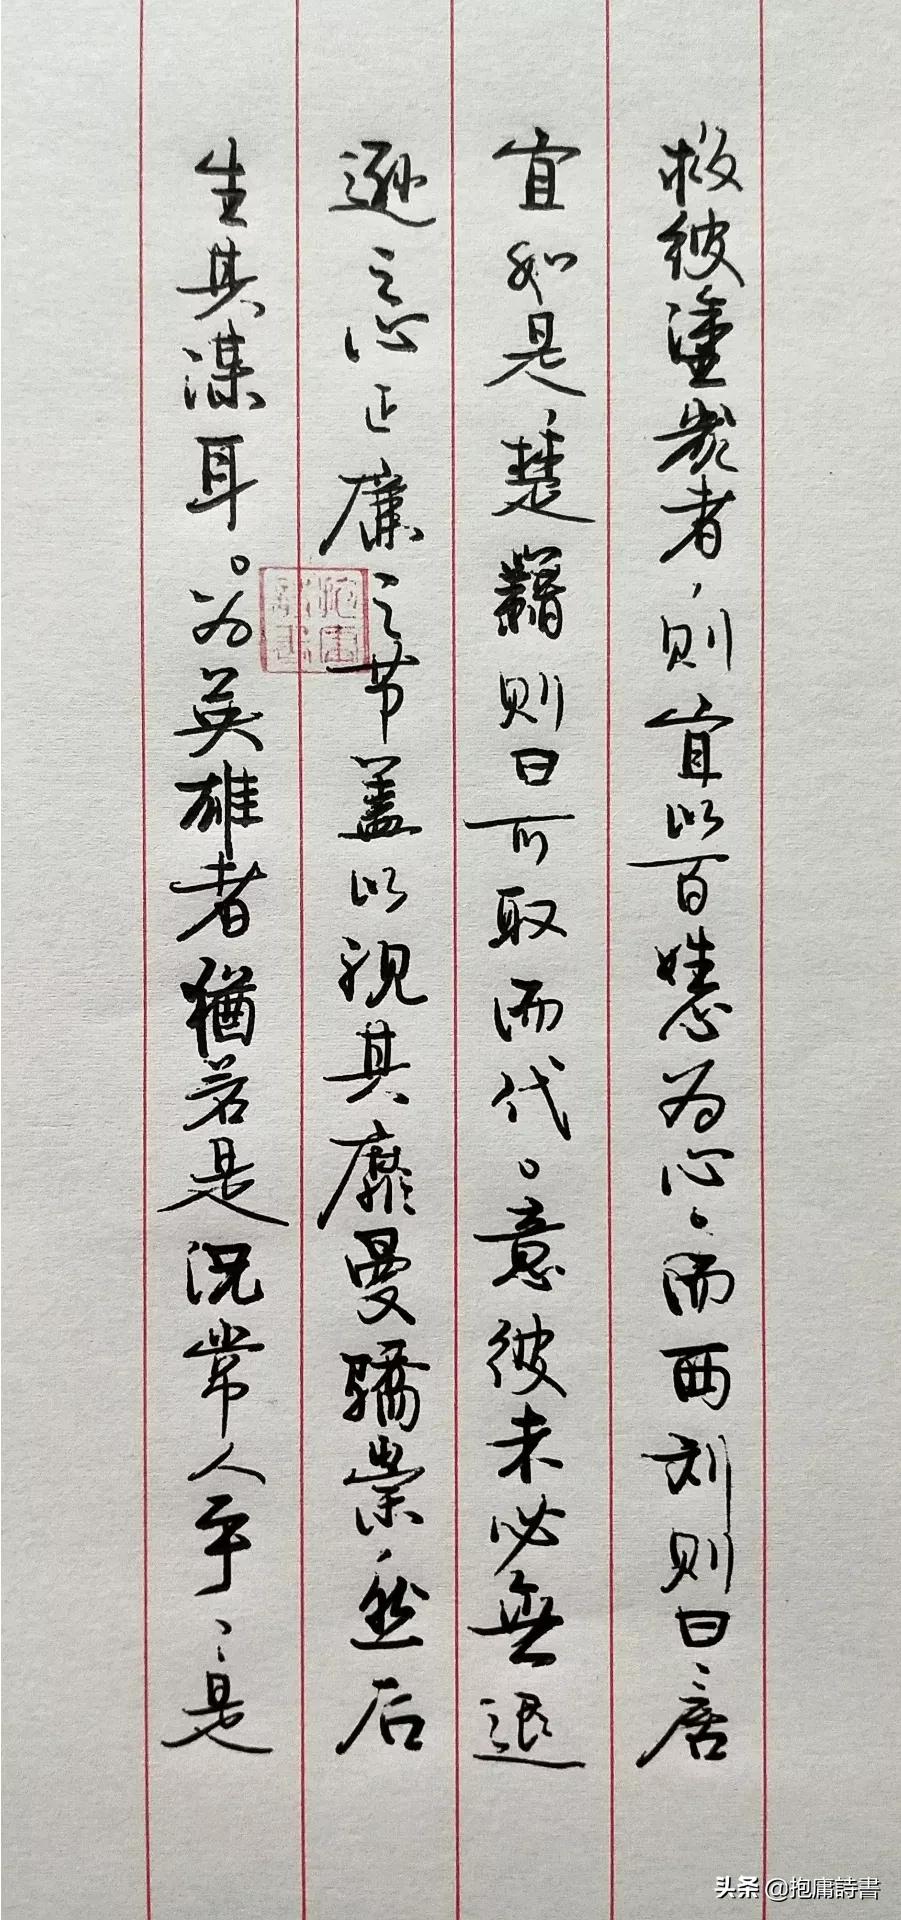 救彼塗炭者，则宜以百姓心为心。而西刘则曰，居
宜如是，楚籍则曰可取而代。意彼未必無退
遜之心正廉之节盖以视其靡曼驕崇，然后
生其谋耳。为英雄者猶若是况常人乎，是
抱庸詩書
头条 @抱庸詩書